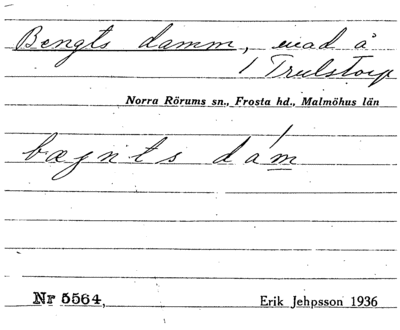 Bengts damm, mad å
1 Trulstorp
Norra Rörums sn., Frosta hd., Malmöhus län
bægnts dám
Nr 5564,
Erik Jehpsson 1936